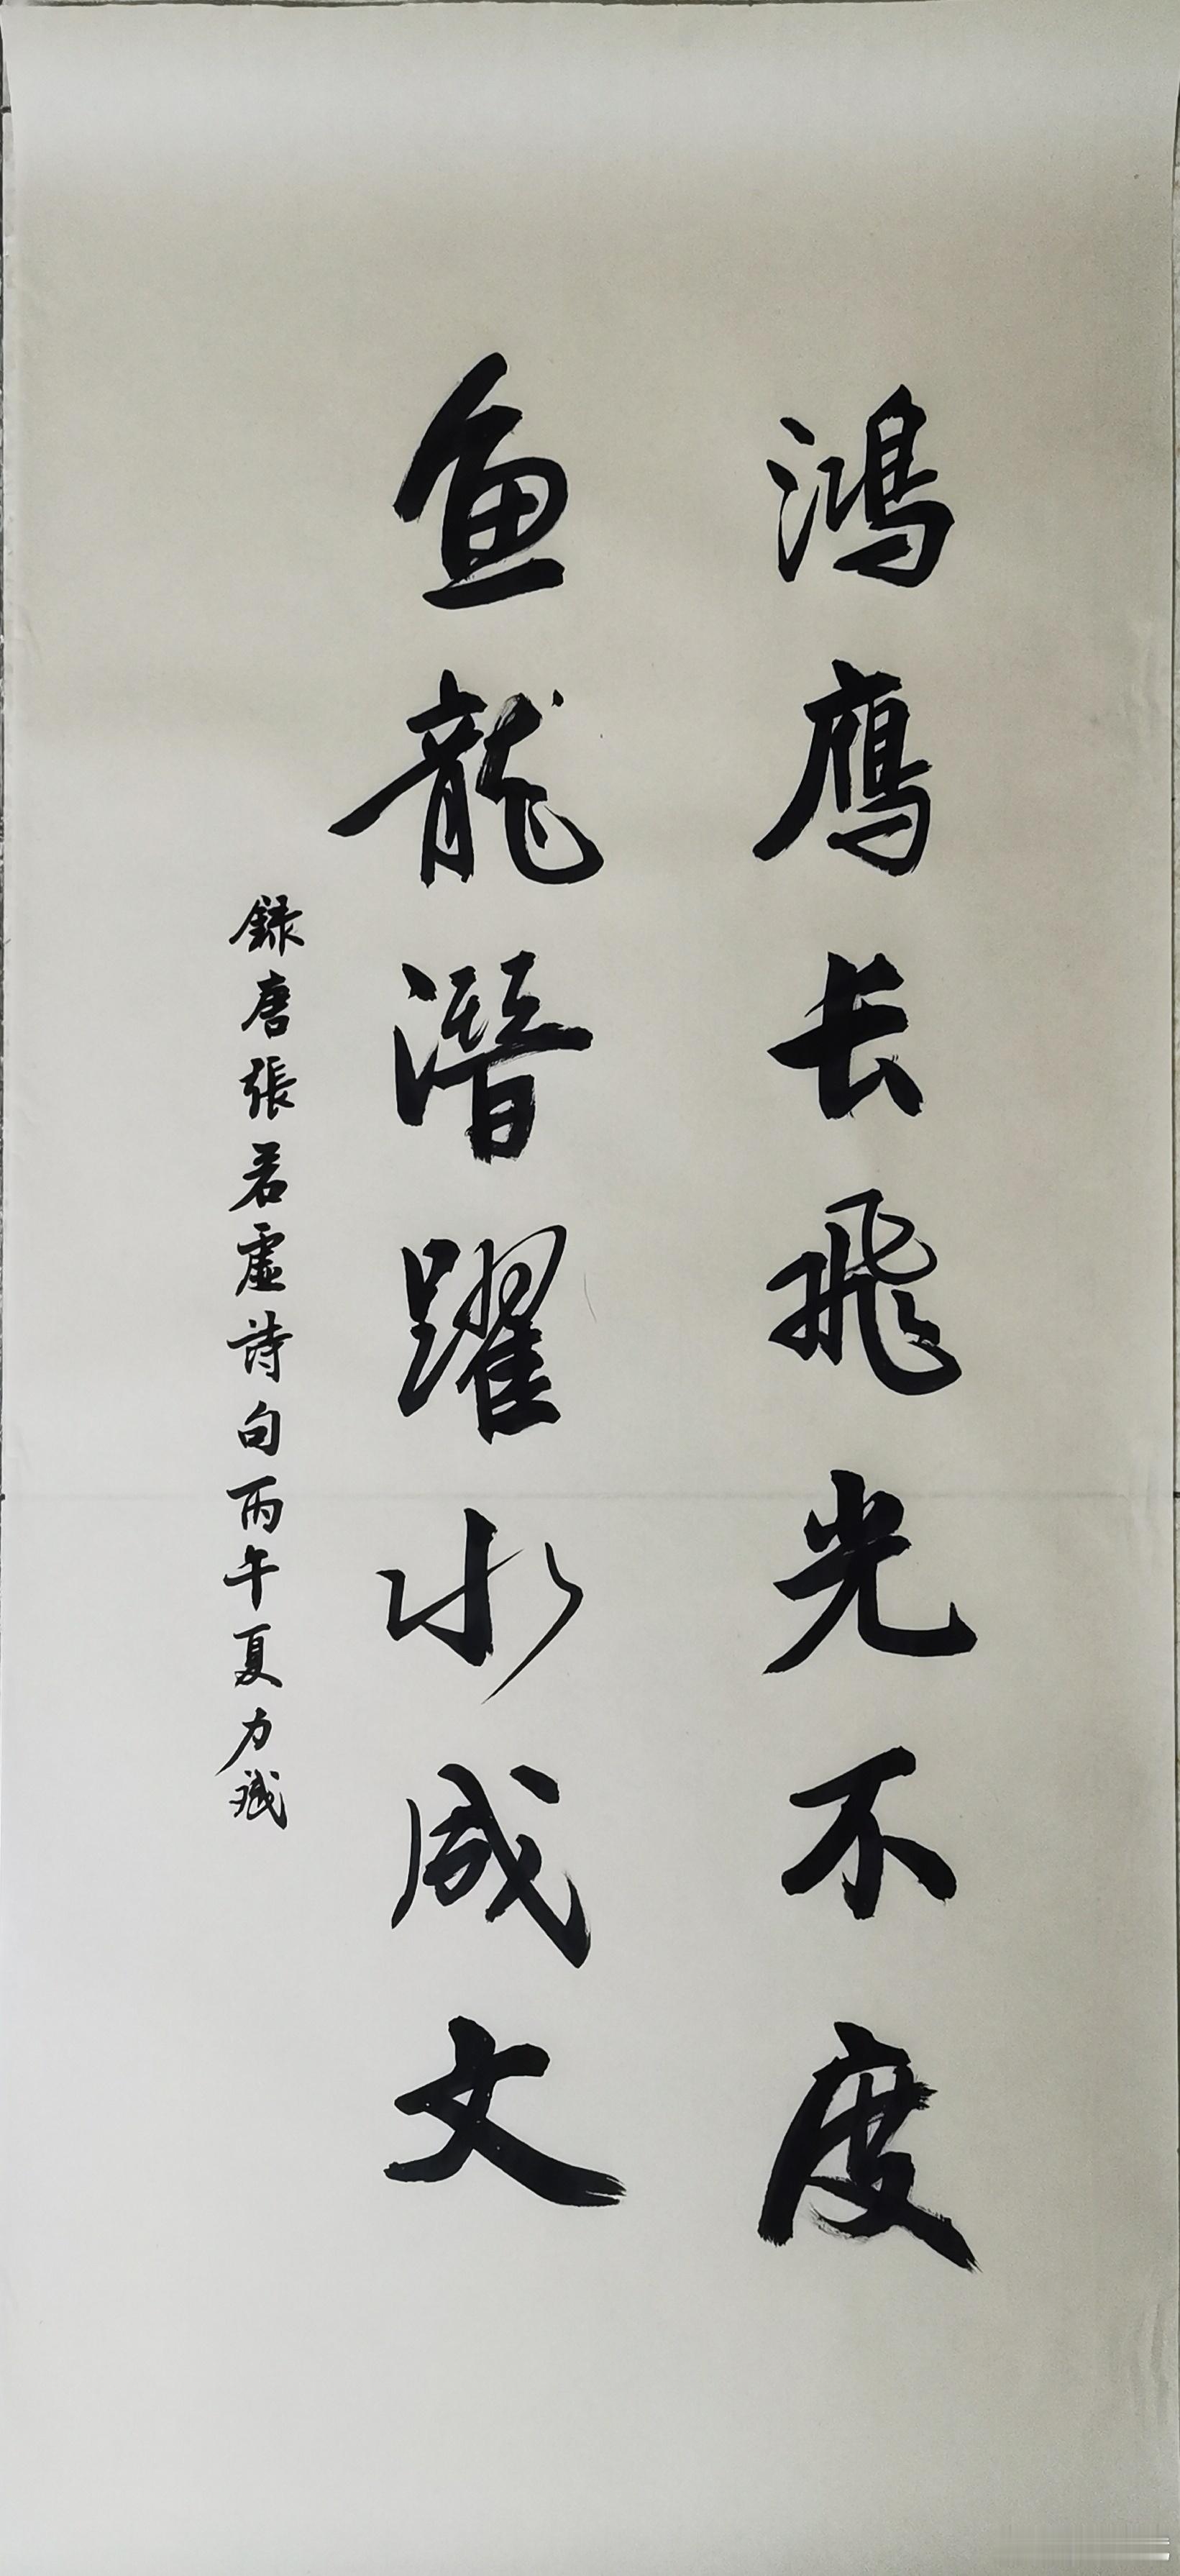 鴻鴈长飛光不度
鱼龍潛躍水成文
録唐張若虛詩句丙午夏力斌